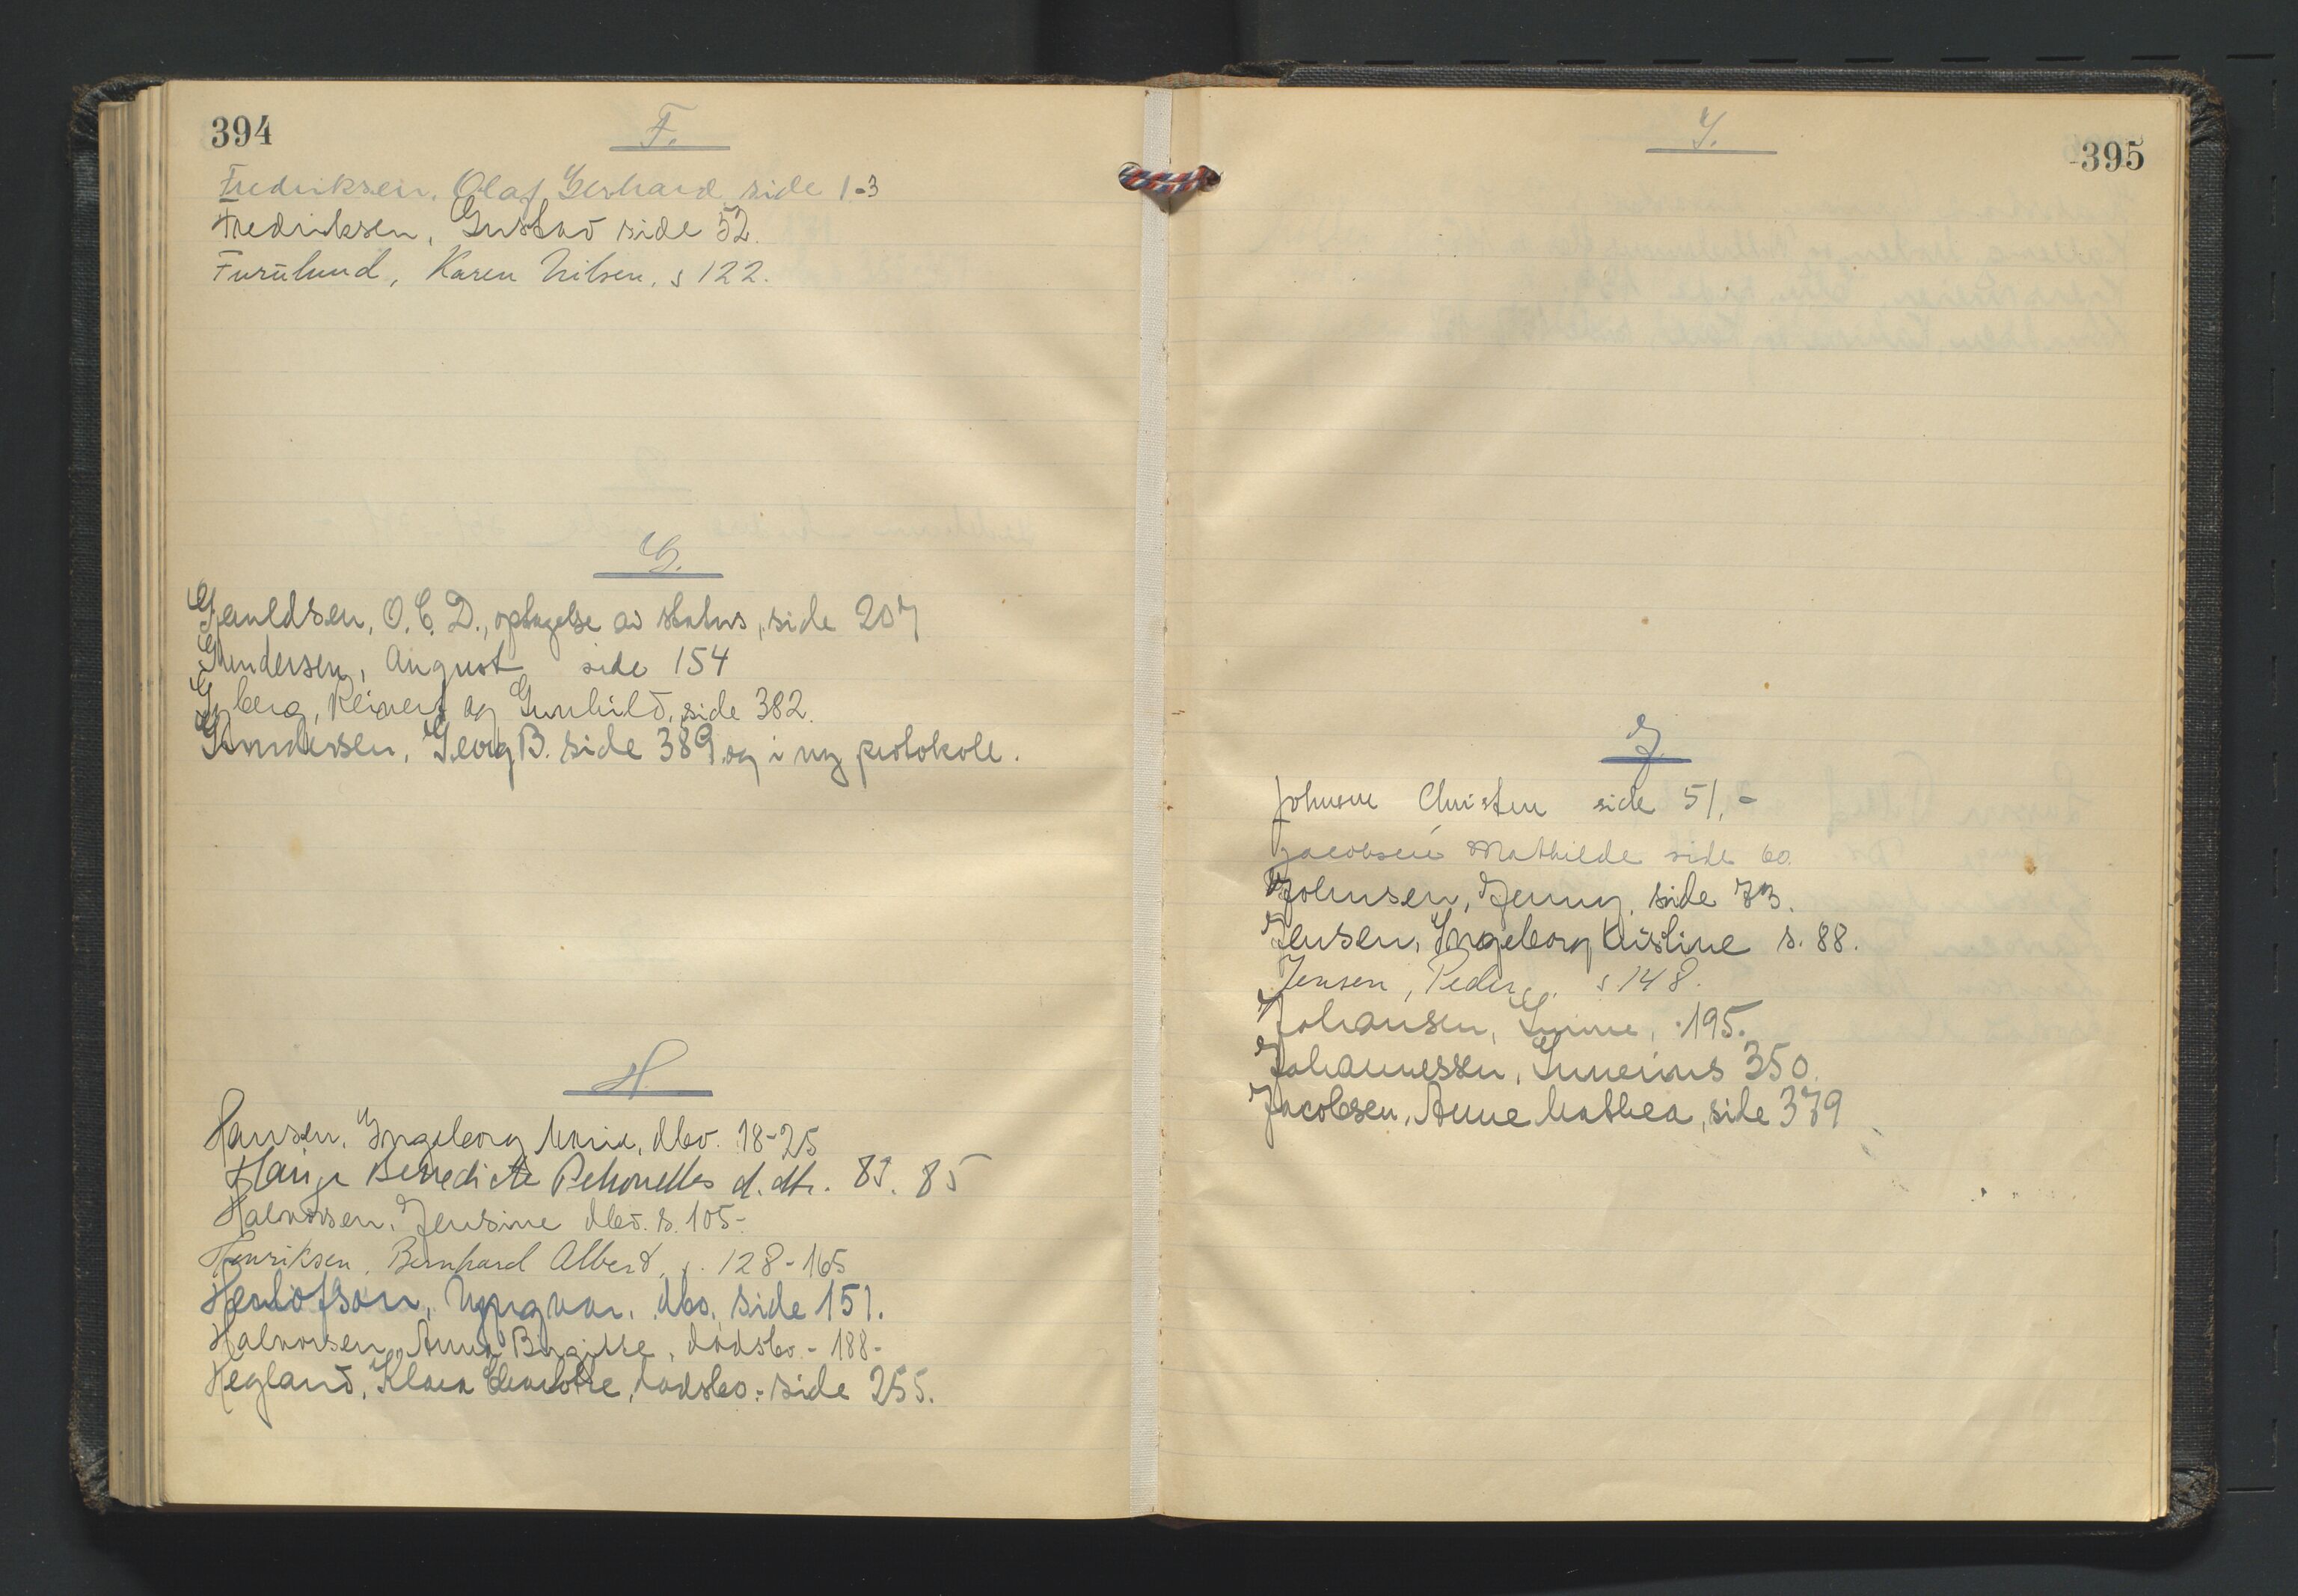 394
F.
Fredriksen, Olaf Gerhard side 1-3
Fredriksen, Gustav side 52.
Furulund, Karen Nilsen, s 122.
G.
Gauldsen, O. C. D., optagelse av status, side 207
Gundersen, August side 154
Gyberg, Reinert og Gunhild, side 382.
Gundersen, Georg B. side 389 og i ny protokoll.
H
Hansen, Ingeborg Marie, dbo. 18-25
Benedicte Petronelles d. 83. 85
Halvorsen, Jensine dbo. s. 105-
Henriksen, Bernhard Albert, s. 128-165
Herlofson, Yngvar, dbo, side 151.
Halvorsen, Anna Birgitte, dødsbo - 188-
Hegland, Klara Charlotte, dødsbo - side 255.
395
I.
J.
Johnsen Christen side 51,-
Jacobsen Mathilde side 60.
Johnsen, Jenny, side 73.
Jensen, Ingeborg Kristine s. 88.
Jensen, Peder, s 148.
Johansen, 195.
Johannessen, 350.
Jacobsen, Anne Mathea, side 379